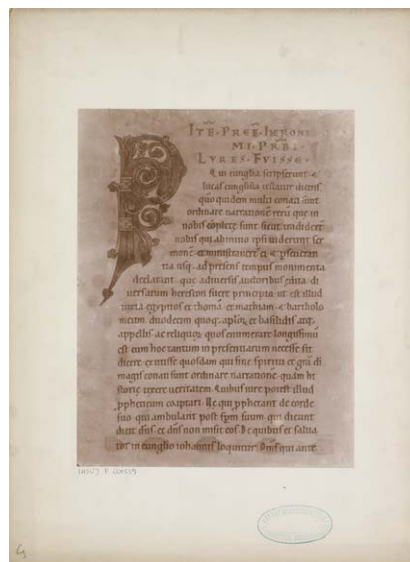 P
ITE · PREF · IHERONI
MI · PRBI ·
LVRES · FVISSE ·
Qui eunglia scripserunt &
lucas eunglista testatur dicens
quo quidem multi conati sunt
ordinare narratione rerū que in
nobis coplete sunt sicut tradider̄t
nobis qui abinitio ipsi uiderunt ser
mone & ministrauer̄t ei & pseueran
tia usq; ad presens tempus monimenta
declarant que adiversis auctoribus edita di
versarum hereseon fuere principio ut est illud
iuxta egyptios et thomā et mathian & bartholo
meum duodecim quoq; aplor et basilidis atq;
appellis ac reliquor quos enumerare longissimū
est cum hoc tantum in presentiarum necesse sit
dicere extitisse quosdam qui sine spiritu et gra dī
magis conati sunt ordinare narratione quam hi
storie texere veritatem Quibus iure potest illud
ppheticum coaptari Ve qui pphetant de corde
suo qui ambulant post spm suum qui dicunt
dicit dns et dns non misit eos De quibus et salua
tor in eunglio iohannis loquitur Oms qui ante